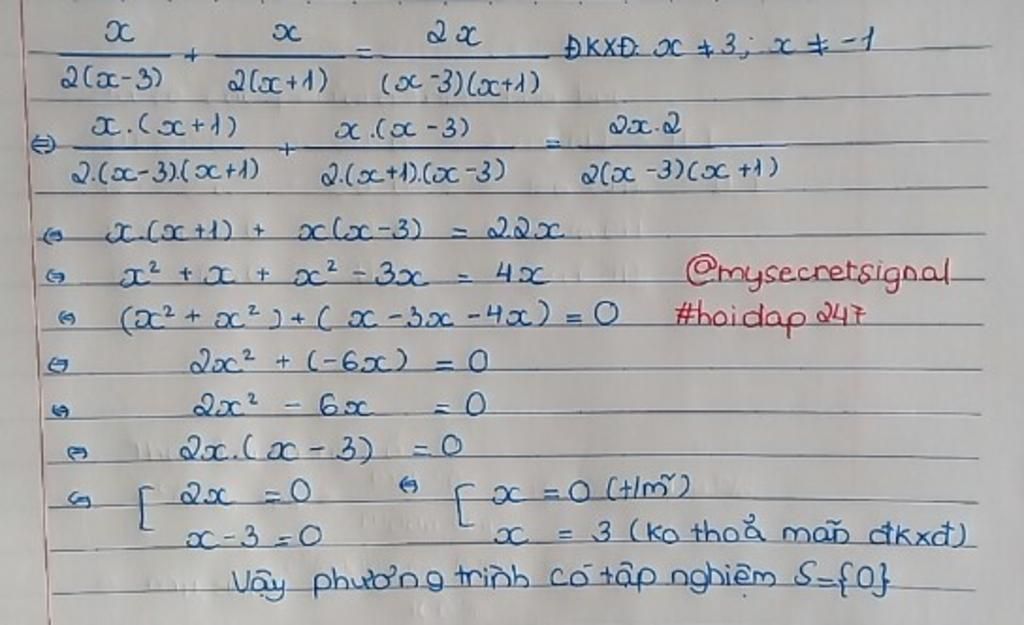 x/2(x-3) + x/2(x+1) = 2x/(x-3)(x+1) ĐKXĐ: x ≠ 3; x ≠ -1
⇔ x.(x+1)/2.(x-3).(x+1) + x.(x-3)/2.(x+1).(x-3) = 2x.2/2(x-3)(x+1)
⇔ x.(x+1) + x(x-3) = 2.2x
⇔ x² + x + x² - 3x = 4x
@mysecretsignal
⇔ (x² + x²) + (x - 3x - 4x) = 0
#hoidap247
⇔ 2x² + (-6x) = 0
⇔ 2x² - 6x = 0
⇔ 2x.(x - 3) = 0
⇔ [ 2x = 0 ⇔ [ x = 0 (t/m)
x - 3 = 0 x = 3 (ko thoả mãn đkxđ)
Vậy phương trình có tập nghiệm S={0}